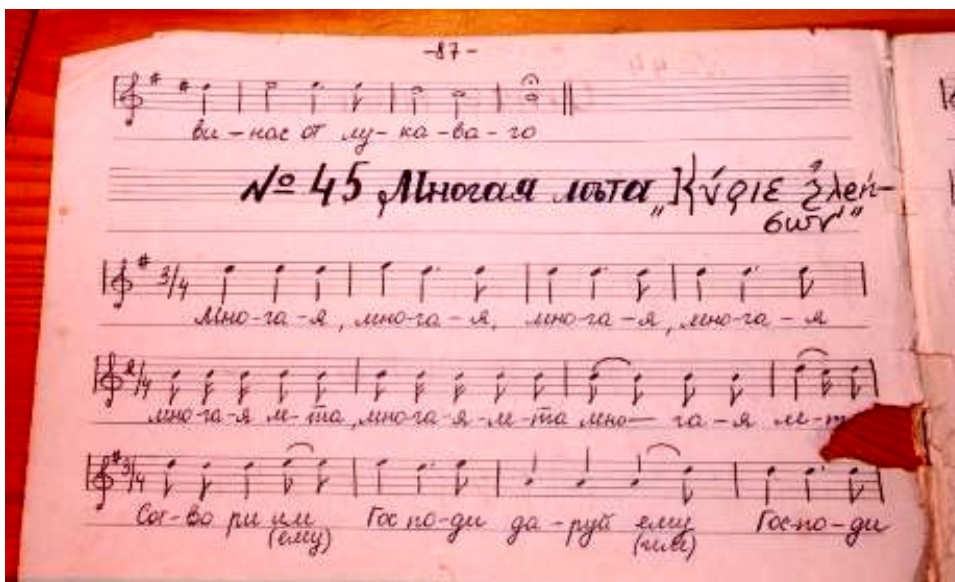 -87-
ви-нас от лу-ка-ва-го
№ 45 Многая лѣта „Κύριε ἐλεή-
σων"
3/4
Мно-га-я, мно-га-я, мно-га-я, мно-га-я
2/4
мно-га-я ле-та, мно-га-я-ле-та мно-га-я ле-т
3/4
Сот-во ри им Гос по-ди да-руй ему Гос-по-ди
(ему) (им)